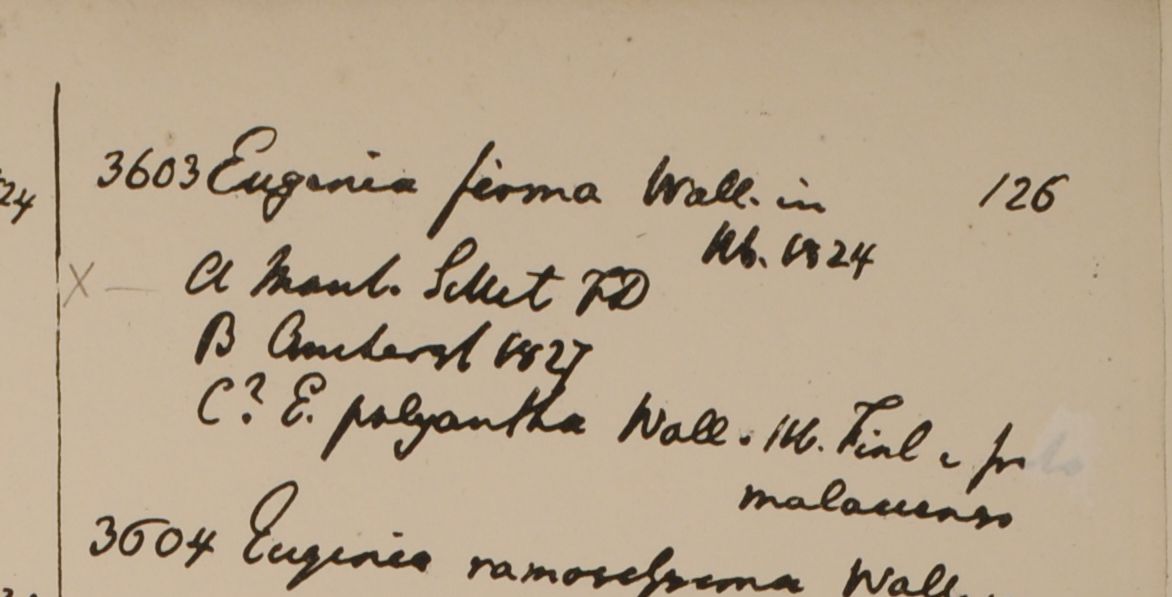 24
3603 Eugenia firma Wall. in 126
Hb. 1824
X — A Mont. Sillet FD
B Amherst 1827
C? E. polyantha Wall. Hb. Finl c fr
malaccensis
3604 Eugenia ramosissima Wall.